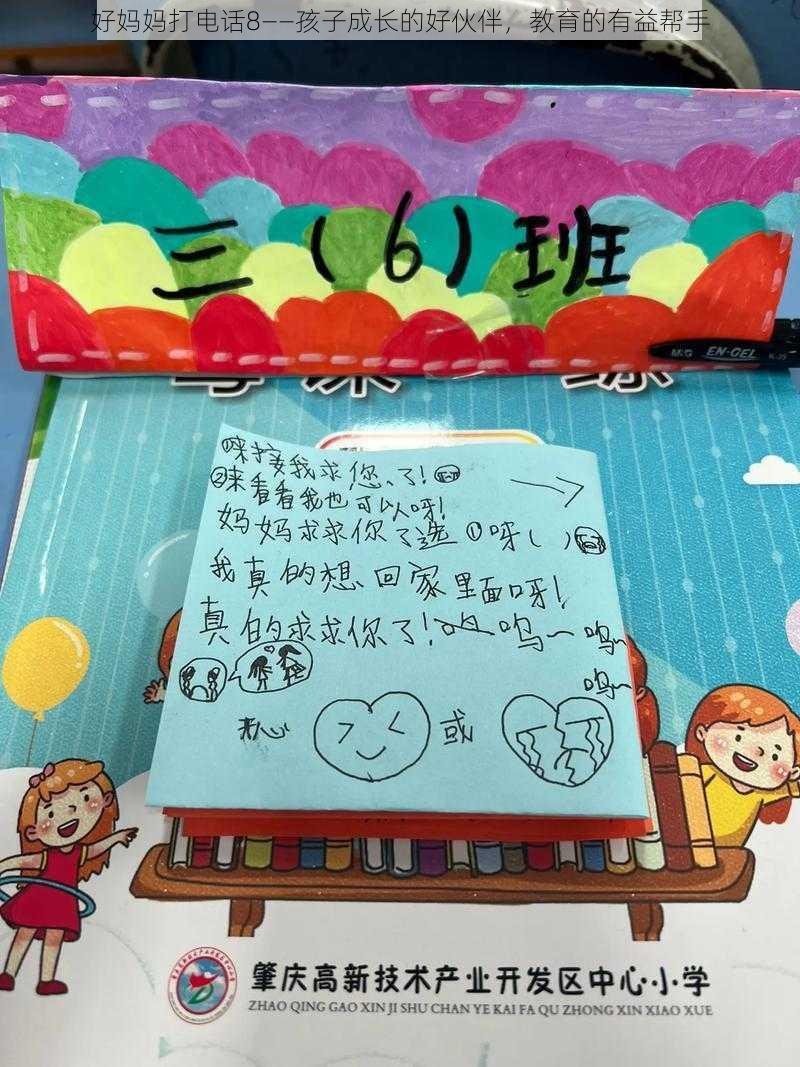 好妈妈打电话8——孩子成长的好伙伴，教育的有益帮手
三（6）班
M&G EN-GEL K-35
①来接我求您了！
②来看看我也可以呀！
妈妈求求你了选①呀（ ）
我真的想回家里面呀！
真的求求你了！呜~呜~
呜~
开心 或
肇庆高新技术产业开发区中心小学
ZHAO QING GAO XIN JI SHU CHAN YE KAI FA QU ZHONG XIN XIAO XUE